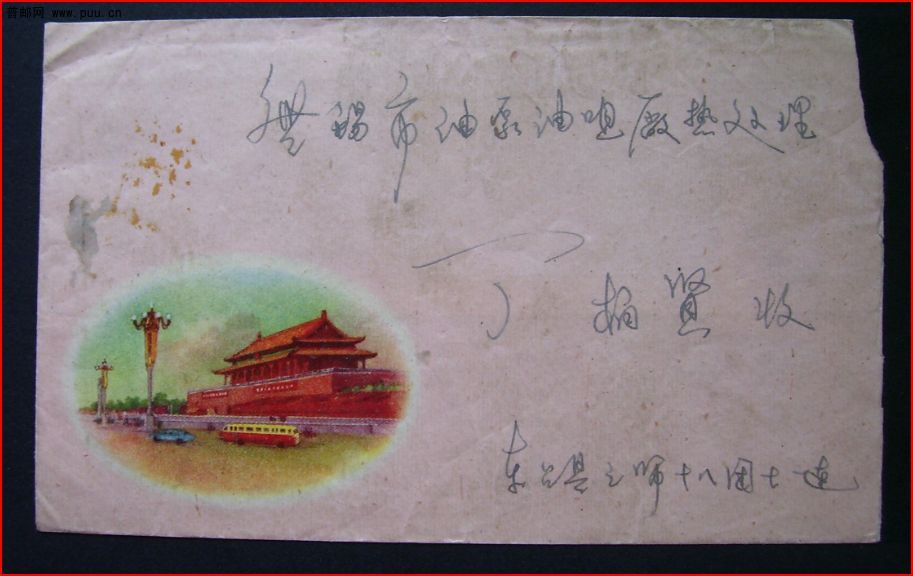 普邮网 www.puu.cn
無锡市油泵油咀厰热处理
丁 柏贤 收
东台县三师十八团十一连